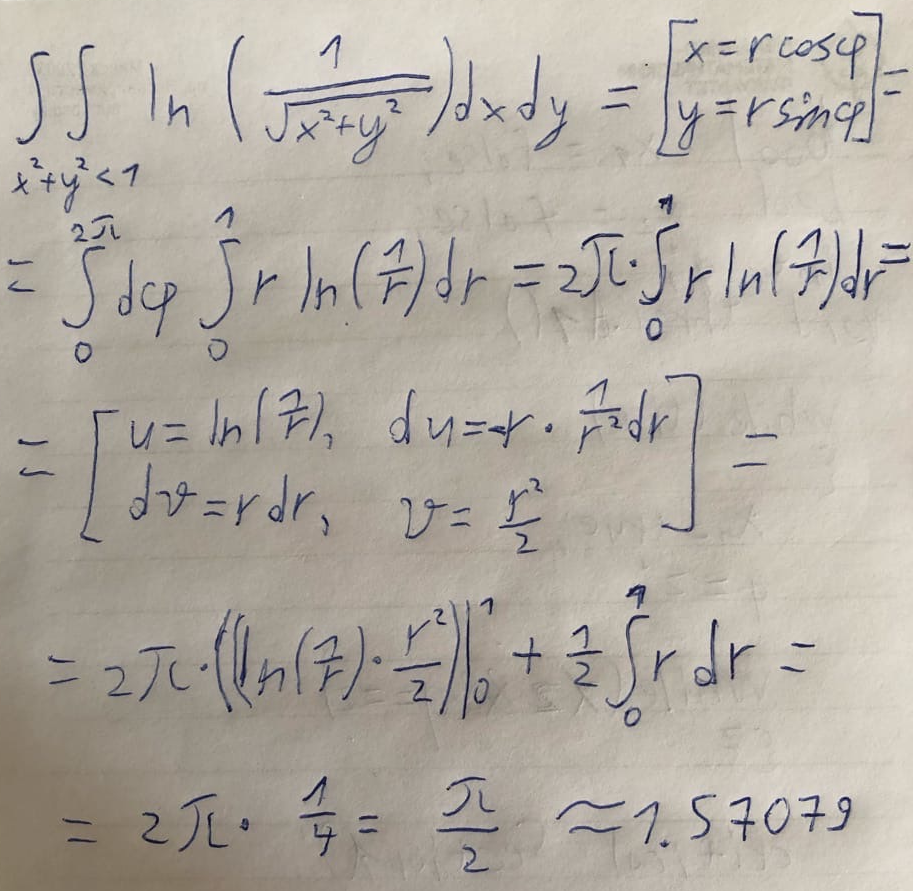 ∬ ln (1/√(x²+y²)) dx dy = [x = r cosφ, y = r sinφ] =
x²+y²<1
= ∫₀^{2π} dφ ∫₀¹ r ln(1/r) dr = 2π · ∫₀¹ r ln(1/r) dr =
= [u = ln(1/r), du = -r · 1/r² dr
dv = r dr, v = r²/2] =
= 2π · ((ln(1/r) · r²/2)|₀¹ + 1/2 ∫₀¹ r dr =
= 2π · 1/4 = π/2 ≈ 1.57079